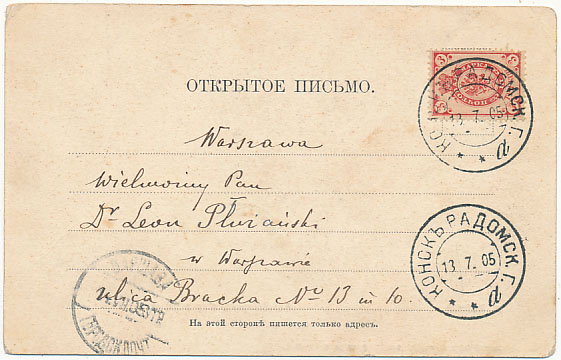 ОТКРЫТОЕ ПИСЬМО.
КОНСКЪ РАДОМСК. Г.
13 7 05
а
Warszawa
Wielmożny Pan
Dr Leon
w Warszawie
ulica Bracka No 13 m 10.
КОНСКЪ РАДОМСК. Г.
13 7 05
а
На этой сторонѣ пишется только адресъ.